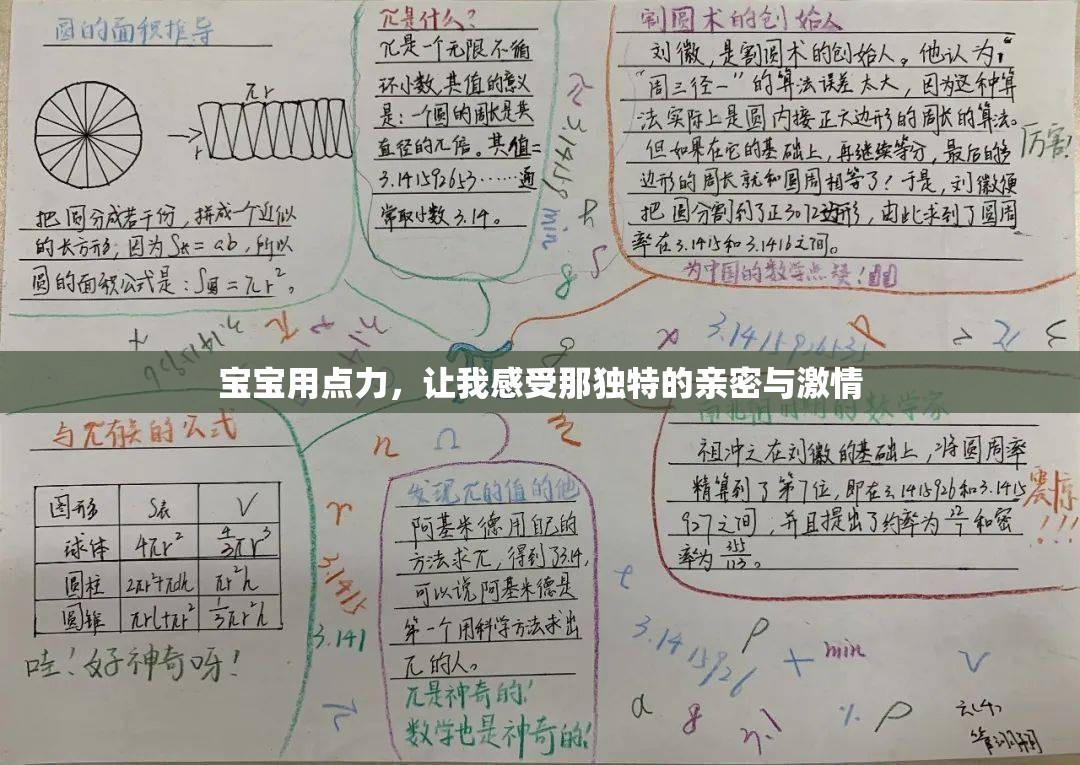 圆的面积推导
πr
r
把圆分成若干份，拼成一个近似
的长方形；因为S长=ab，所以
圆的面积公式是：S圆=πr²。
π是什么？
π是一个无限不循
环小数，其值的意义
是：一个圆的周长是其
直径的π倍。其值=
3.141592653……通
常取小数3.14。
割圆术的创始人
刘徽，是割圆术的创始人。他认为
“周三径一”的算法误差太大，因为这种算
法实际上是圆内接正六边形的周长的算法。
但如果在它的基础上，再继续等分，最后的多
边形的周长就和圆周相等了！于是，刘徽便
把圆分割到了正3072边形，由此求到了圆周
率在3.1415和3.1416之间。
厉害！
为中国的数学点赞！
π 3.14159 min
3.1415926535
宝宝用点力，让我感受那独特的亲密与激情
与π有关的公式
图形 S表 V
球体 4πr² 4/3πr³
圆柱 2πr²+πdh πr²h
圆锥 πrl+πr² 1/3πr²h
哇！好神奇呀！
3.1415
3.141
发现π的值的他
阿基米德用自己的
方法求π，得到了3.14，
可以说阿基米德是
第一个用科学方法求出
π的人。
π是神奇的！
数学也是神奇的！
的数学家
祖冲之在刘徽的基础上，将圆周率
精算到了第7位，即在3.1415926和3.1415
927之间，并且提出了约率为22/7和密
率为355/113。
震惊！！！
3.1415926
min